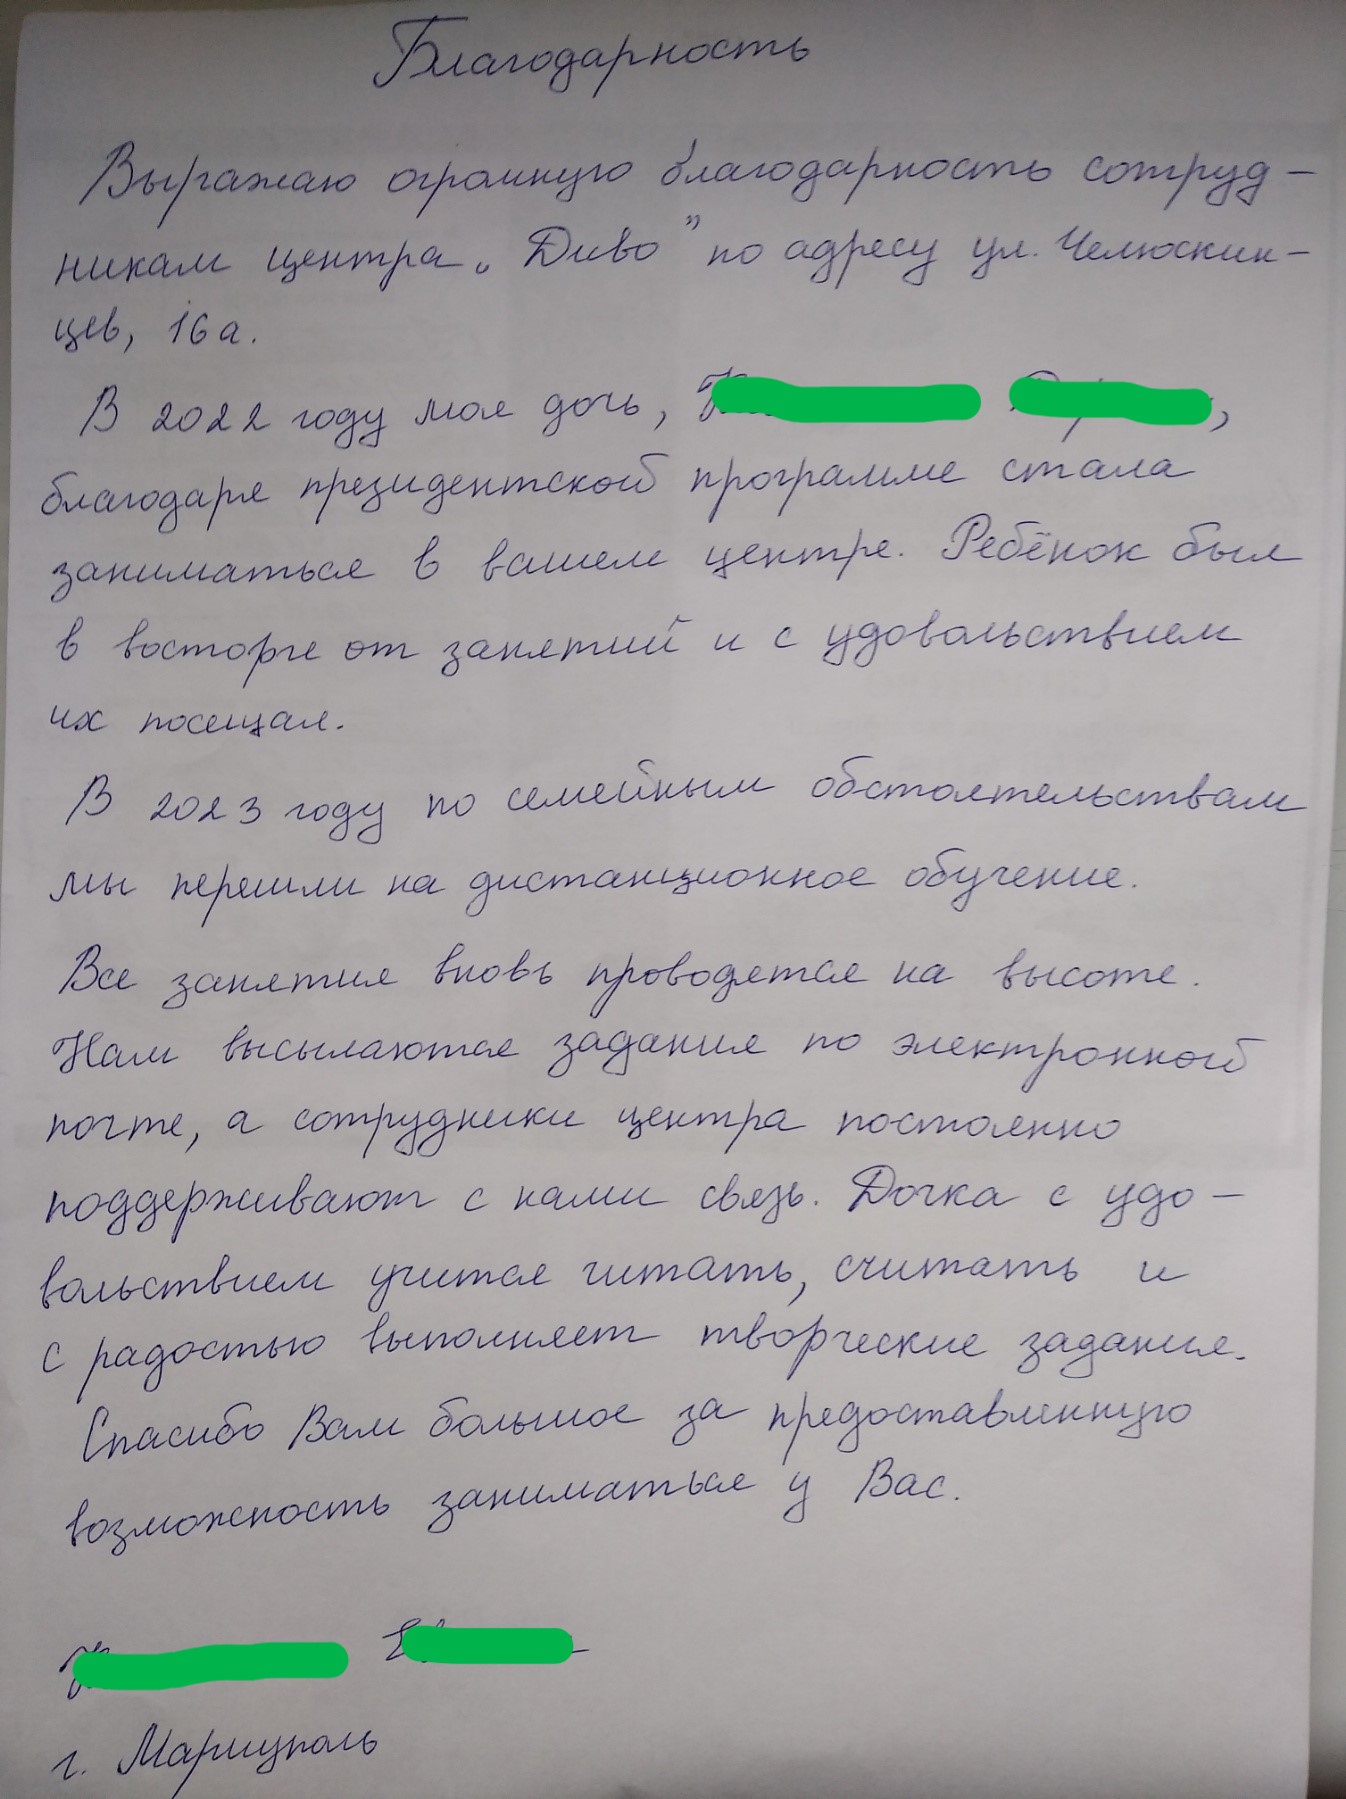 Благодарность
Выражаю огромную благодарность сотруд-
никам центра „Диво” по адресу ул. Челюскин-
цев, 16а.
В 2022 году моя дочь,
благодаря президентской программе стала
заниматься в вашем центре. Ребёнок был
в восторге от занятий и с удовольствием
их посещал.
В 2023 году по семейным обстоятельствам
мы перешли на дистанционное обучение.
Все занятия вновь проводятся на высоте.
Нам высылаются задания по электронной
почте, а сотрудники центра постоянно
поддерживают с нами связь. Дочка с удо-
вольствием учится читать, считать и
с радостью выполняет творческие задания.
Спасибо Вам большое за предоставленную
возможность заниматься у Вас.
г. Мариуполь